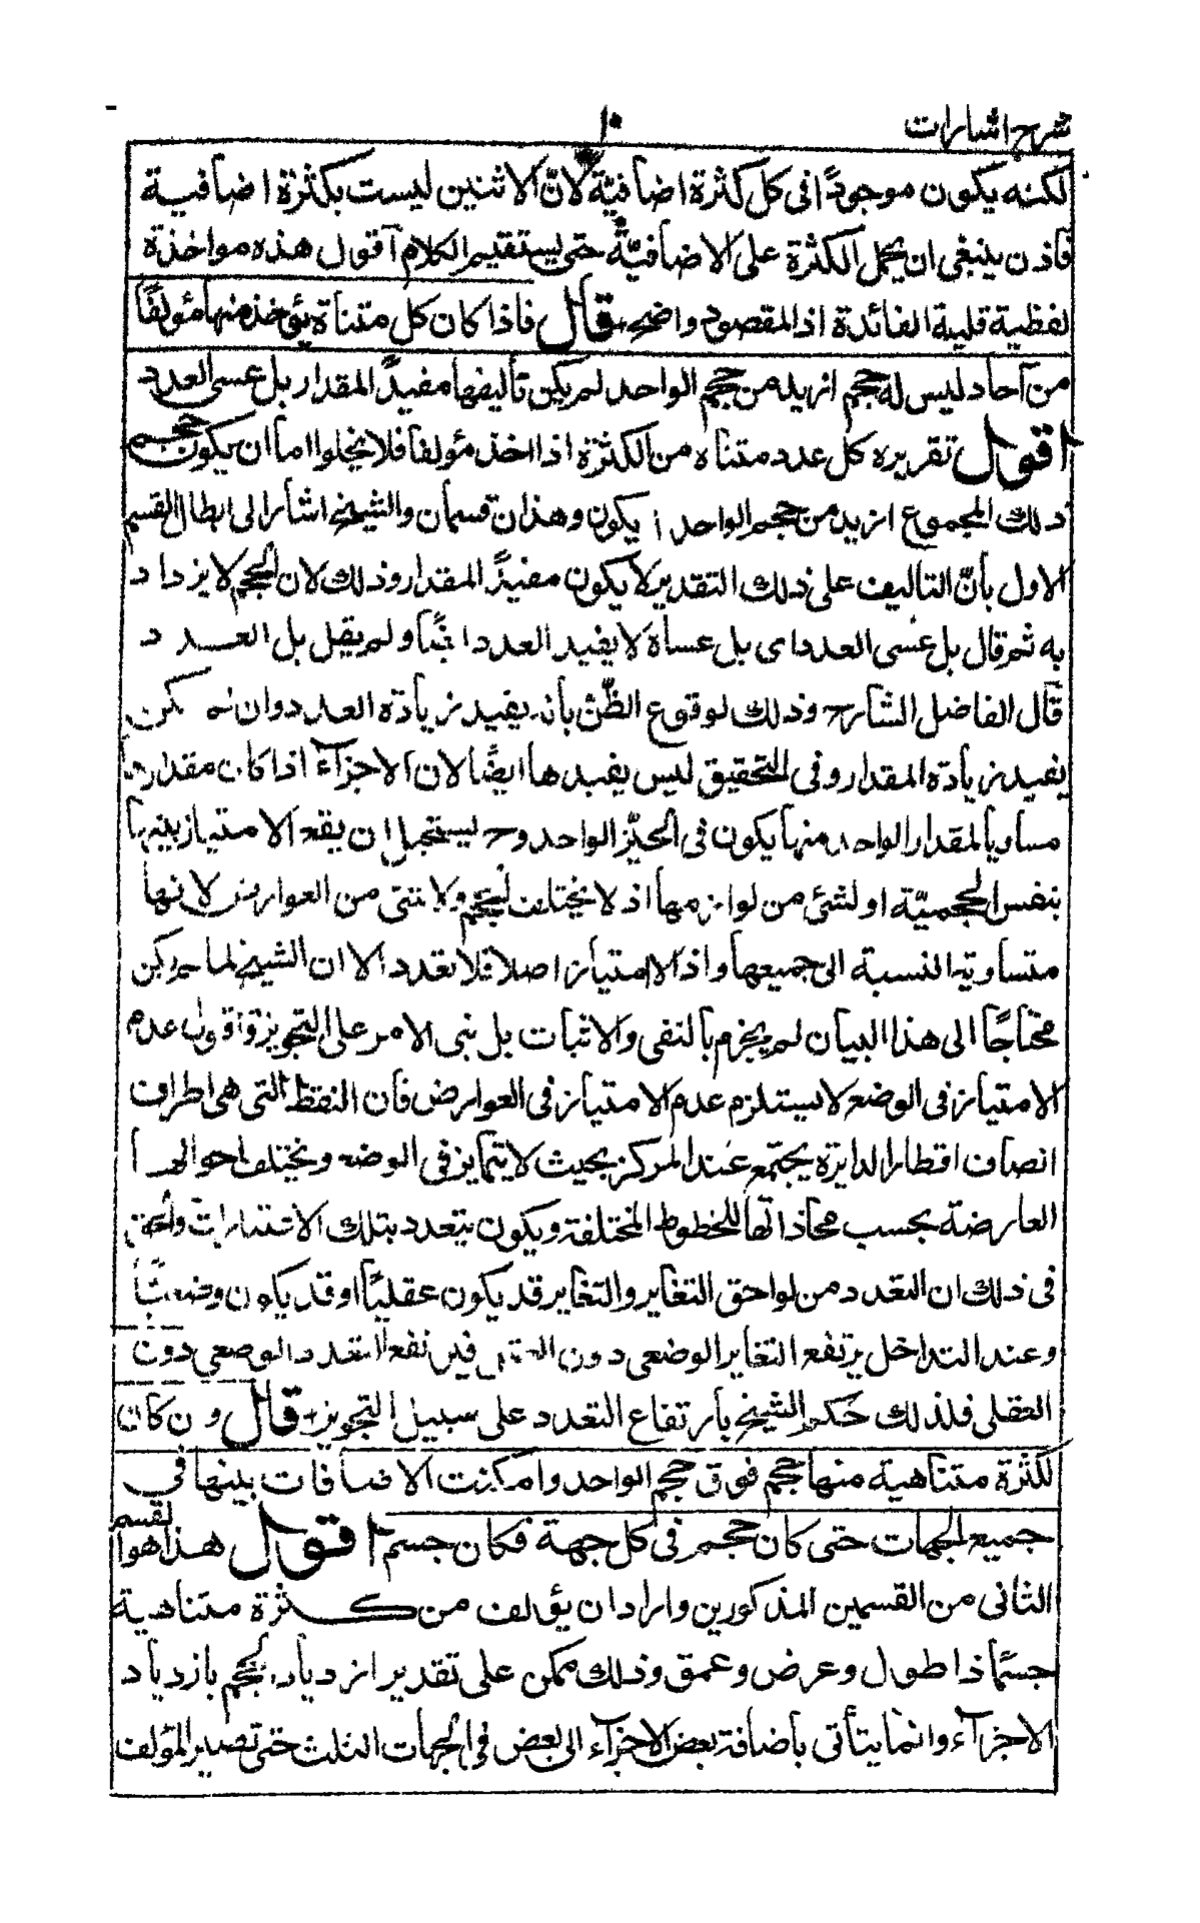 شرح اشارات
١٠
لكنه يكون موجودًا فى كل كثرة اضافيّة لانّ الاثنين ليست بكثرة اضافية
فاذن ينبغى ان يحمل الكثرة على الاضافيّة حتى يستقيم الكلام اقول هذه مواخذة
لفظية قليلة الفائدة اذ المقصود واضح قال فاذا كان كل متناة يؤخذ منها مؤلفًا
من آحاد ليس له حجم ازيد من حجم الواحد لم يكن تأليفها مفيدًا المقدار بل عسى العدد
اقول تقريره كل عدد متناه من الكثرة اذا اخذ مؤلفا فلا يخلوا اما ان يكون حجم
ذلك المجموع ازيد من حجم الواحد ا يكون وهذان قسمان والشيخ اشار الى ابطال القسم
الاول بأنّ التاليف على ذلك التقدير لا يكون مفيدًا المقدار وذلك لان الحجم لا يزداد
به ثم قال بل عسى العدد اى بل عساه لا يفيد العدد ايضًا ولم يقل بل العدد
قال الفاضل الشارح وذلك لوقوع الظّن بأنه يفيد زيادة العدد وان لم يكن
يفيد زيادة المقدار وفى التحقيق ليس يفيدها ايضًا لان الاجزآء اذا كان مقدارها
مساويا لمقدار الواحد منها يكون فى الحيّز الواحد وح يستحيل ان يقع الامتياز بينها
بنفس الحجميّة او لشئ من لوازمها اذ لا يختلف الحجم ولا بشئ من العوارض لانها
متساوية النسبة الى جميعها واذ لا امتياز اصلا فلا تعدد الا ان الشيخ لما لم يكن
محتاجًا الى هذا البيان لم يجزم بالنفى والاثبات بل بنى الامر على التجويز واقول عدم
الامتياز فى الوضع لا يستلزم عدم الامتياز فى العوارض فان النقط التى هى اطراف
انصاف اقطار الدايرة يجتمع عند المركز بحيث لا يتمايز فى الوضع ويختلف احوالها
العارضة بحسب محاذاتها للخطوط المختلفة ويكون يتعدد بتلك الاعتبارات والحق
فى ذلك ان التعدد من لواحق التغاير والتغاير قد يكون عقليًا او قد يكون وضعيًا
وعند التداخل يرتفع التغاير الوضعى دون العقلى فيرتفع التعدد الوضعى دون
العقلى فلذلك حكم الشيخ بارتفاع التعدد على سبيل التجويز قال و ن كان
لكثرة متناهية منها حجم فوق حجم الواحد وامكنت الاضافات بينها فى
جميع الجهات حتى كان حجم فى كل جهة فكان جسم اقول هذا هو القسم
الثانى من القسمين المذكورين واراد ان يؤلف من كثرة متناهية
جسمًا ذا طول وعرض وعمق وذلك ممكن على تقدير ازدياد الحجم بازدياد
الاجزآء وانما يتأتى باضافة بعض الاجزآء الى بعض فى الجهات الثلث حتى تصير المؤلف